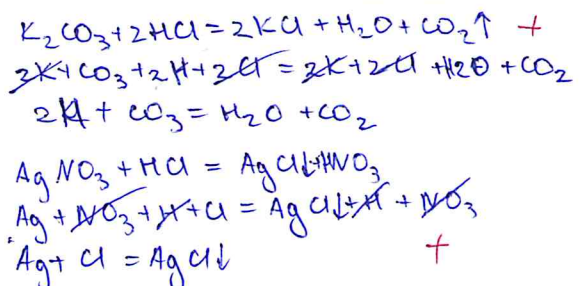 K₂CO₃+2HCl=2KCl+H₂O+CO₂↑ +
2K+CO₃+2H+2Cl=2K+2Cl+H2O+CO₂
2H+CO₃=H₂O+CO₂
AgNO₃+HCl=AgCl↓+HNO₃
Ag+NO₃+H+Cl=AgCl↓+H+NO₃
Ag+Cl=AgCl↓ +